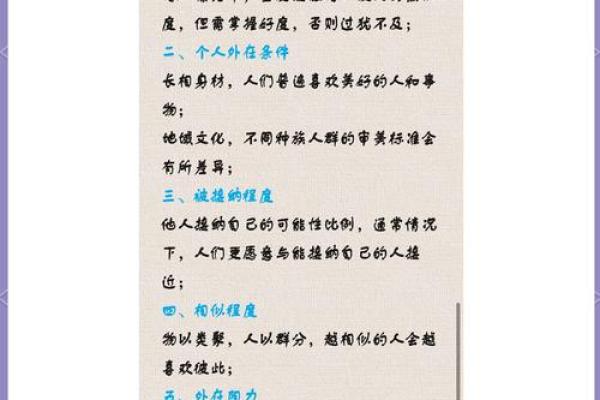 度，但需掌握好度，否则过犹不及；
二、个人外在条件
长相身材，人们普遍喜欢美好的人和事
物；
地域文化，不同种族人群的审美标准会
有所差异；
三、被接纳程度
他人接纳自己的可能性比例，通常情况
下，人们更愿意与能接纳自己的人接
近；
四、相似程度
物以类聚，人以群分，越相似的人会越
喜欢彼此；
五、外在阻力